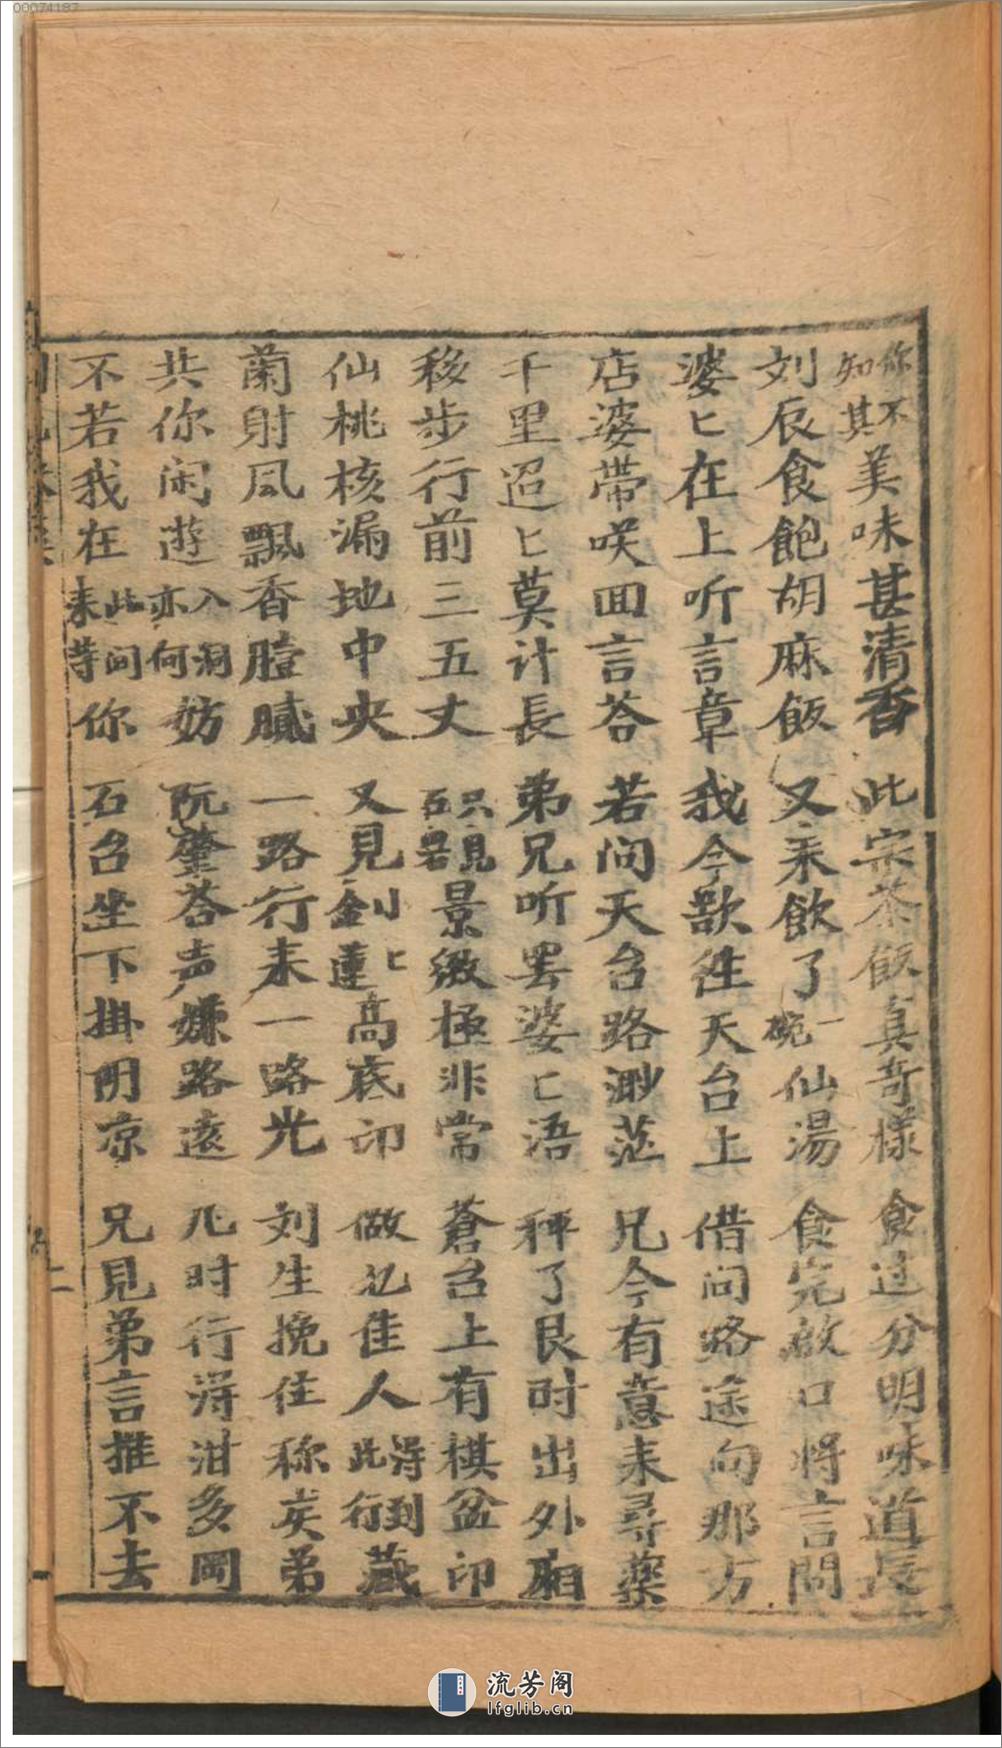 00074187
你不知其美味甚清香 此宗茶飯真奇樣 食过分明味道長
刘辰食飽胡麻飯 又来飲了一碗仙湯 食完啟口将言問
婆匕在上听言章 我今歡徃天台上 借问路途向那方
店婆帶咲回言荅 若问天台路渺茫 兄今有意来尋藥
千里迢匕莫计長 弟兄听罢婆匕语 秤了艮时出外廂
移步行前三五丈 只見石岩景緻極非常 蒼台上有棋盆印
仙桃核漏地中央 又見小匕金蓮高底印 做乜佳人得到此行藏
蘭射风飄香膻膩 一路行来一路光 刘生挽住称矣弟
共你闲逰入洞亦何妨 阮肇荅声嫌路遠 几时行得泔多岡
不若我在此间来等你 石台坐下掛阴凉 兄見弟言推不去
二
流芳阁
lfglib.cn